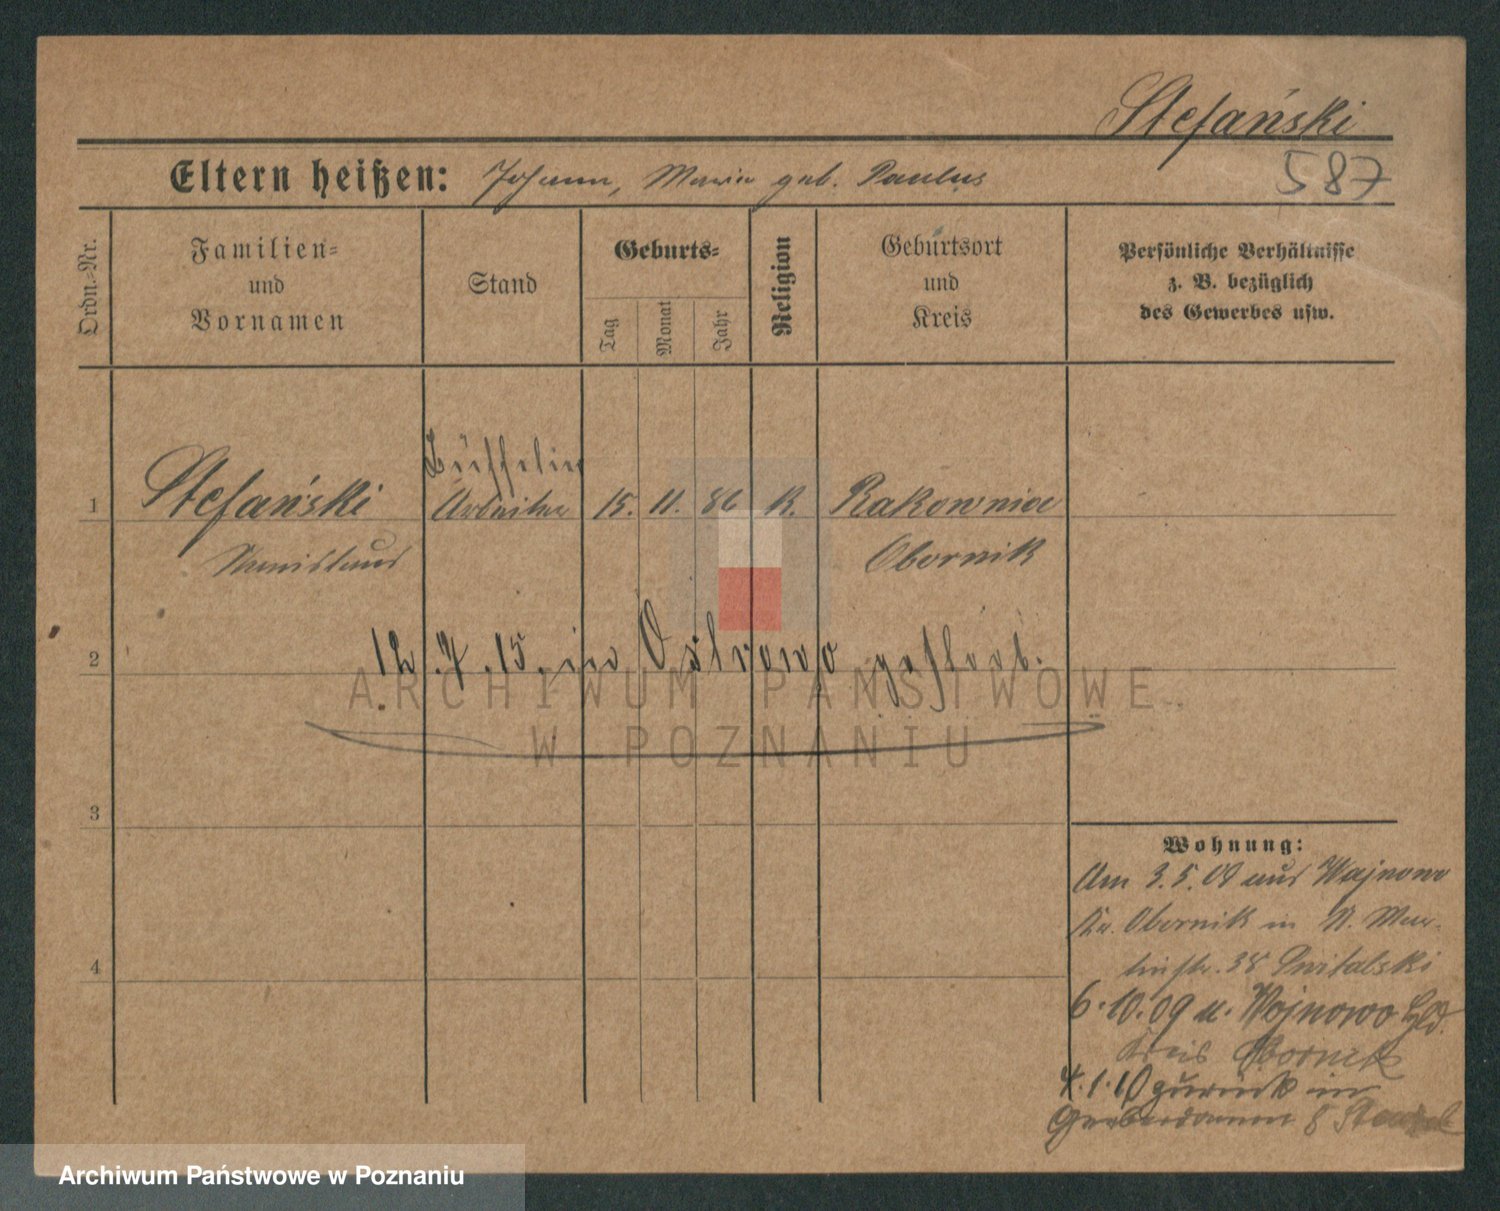 Stefański
Eltern heißen: Johann, Maria geb. Paulus
587
Ordn.-Nr.
Familien-
und
Vornamen
Stand
Geburts-
Tag
Monat
Jahr
Religion
Geburtsort
und
Kreis
Persönliche Verhältnisse
z. B. bezüglich
des Gewerbes usw.
1 Stefański Arbeiter 15. 11. 86 K. Rakownice
Stanislaus Obornik
2
12.7.15. in Ostrowo gestorb.
ARCHIWUM PAŃSTWOWE
W POZNANIU
3
4
Wohnung:
Am 3.5.09 aus Wojnowo
Kr. Obornik in
str. 38
6.10.09 n. Wojnowo
Kreis Obornik
4.1.10 zurück in
Grabendamm 8
Archiwum Państwowe w Poznaniu